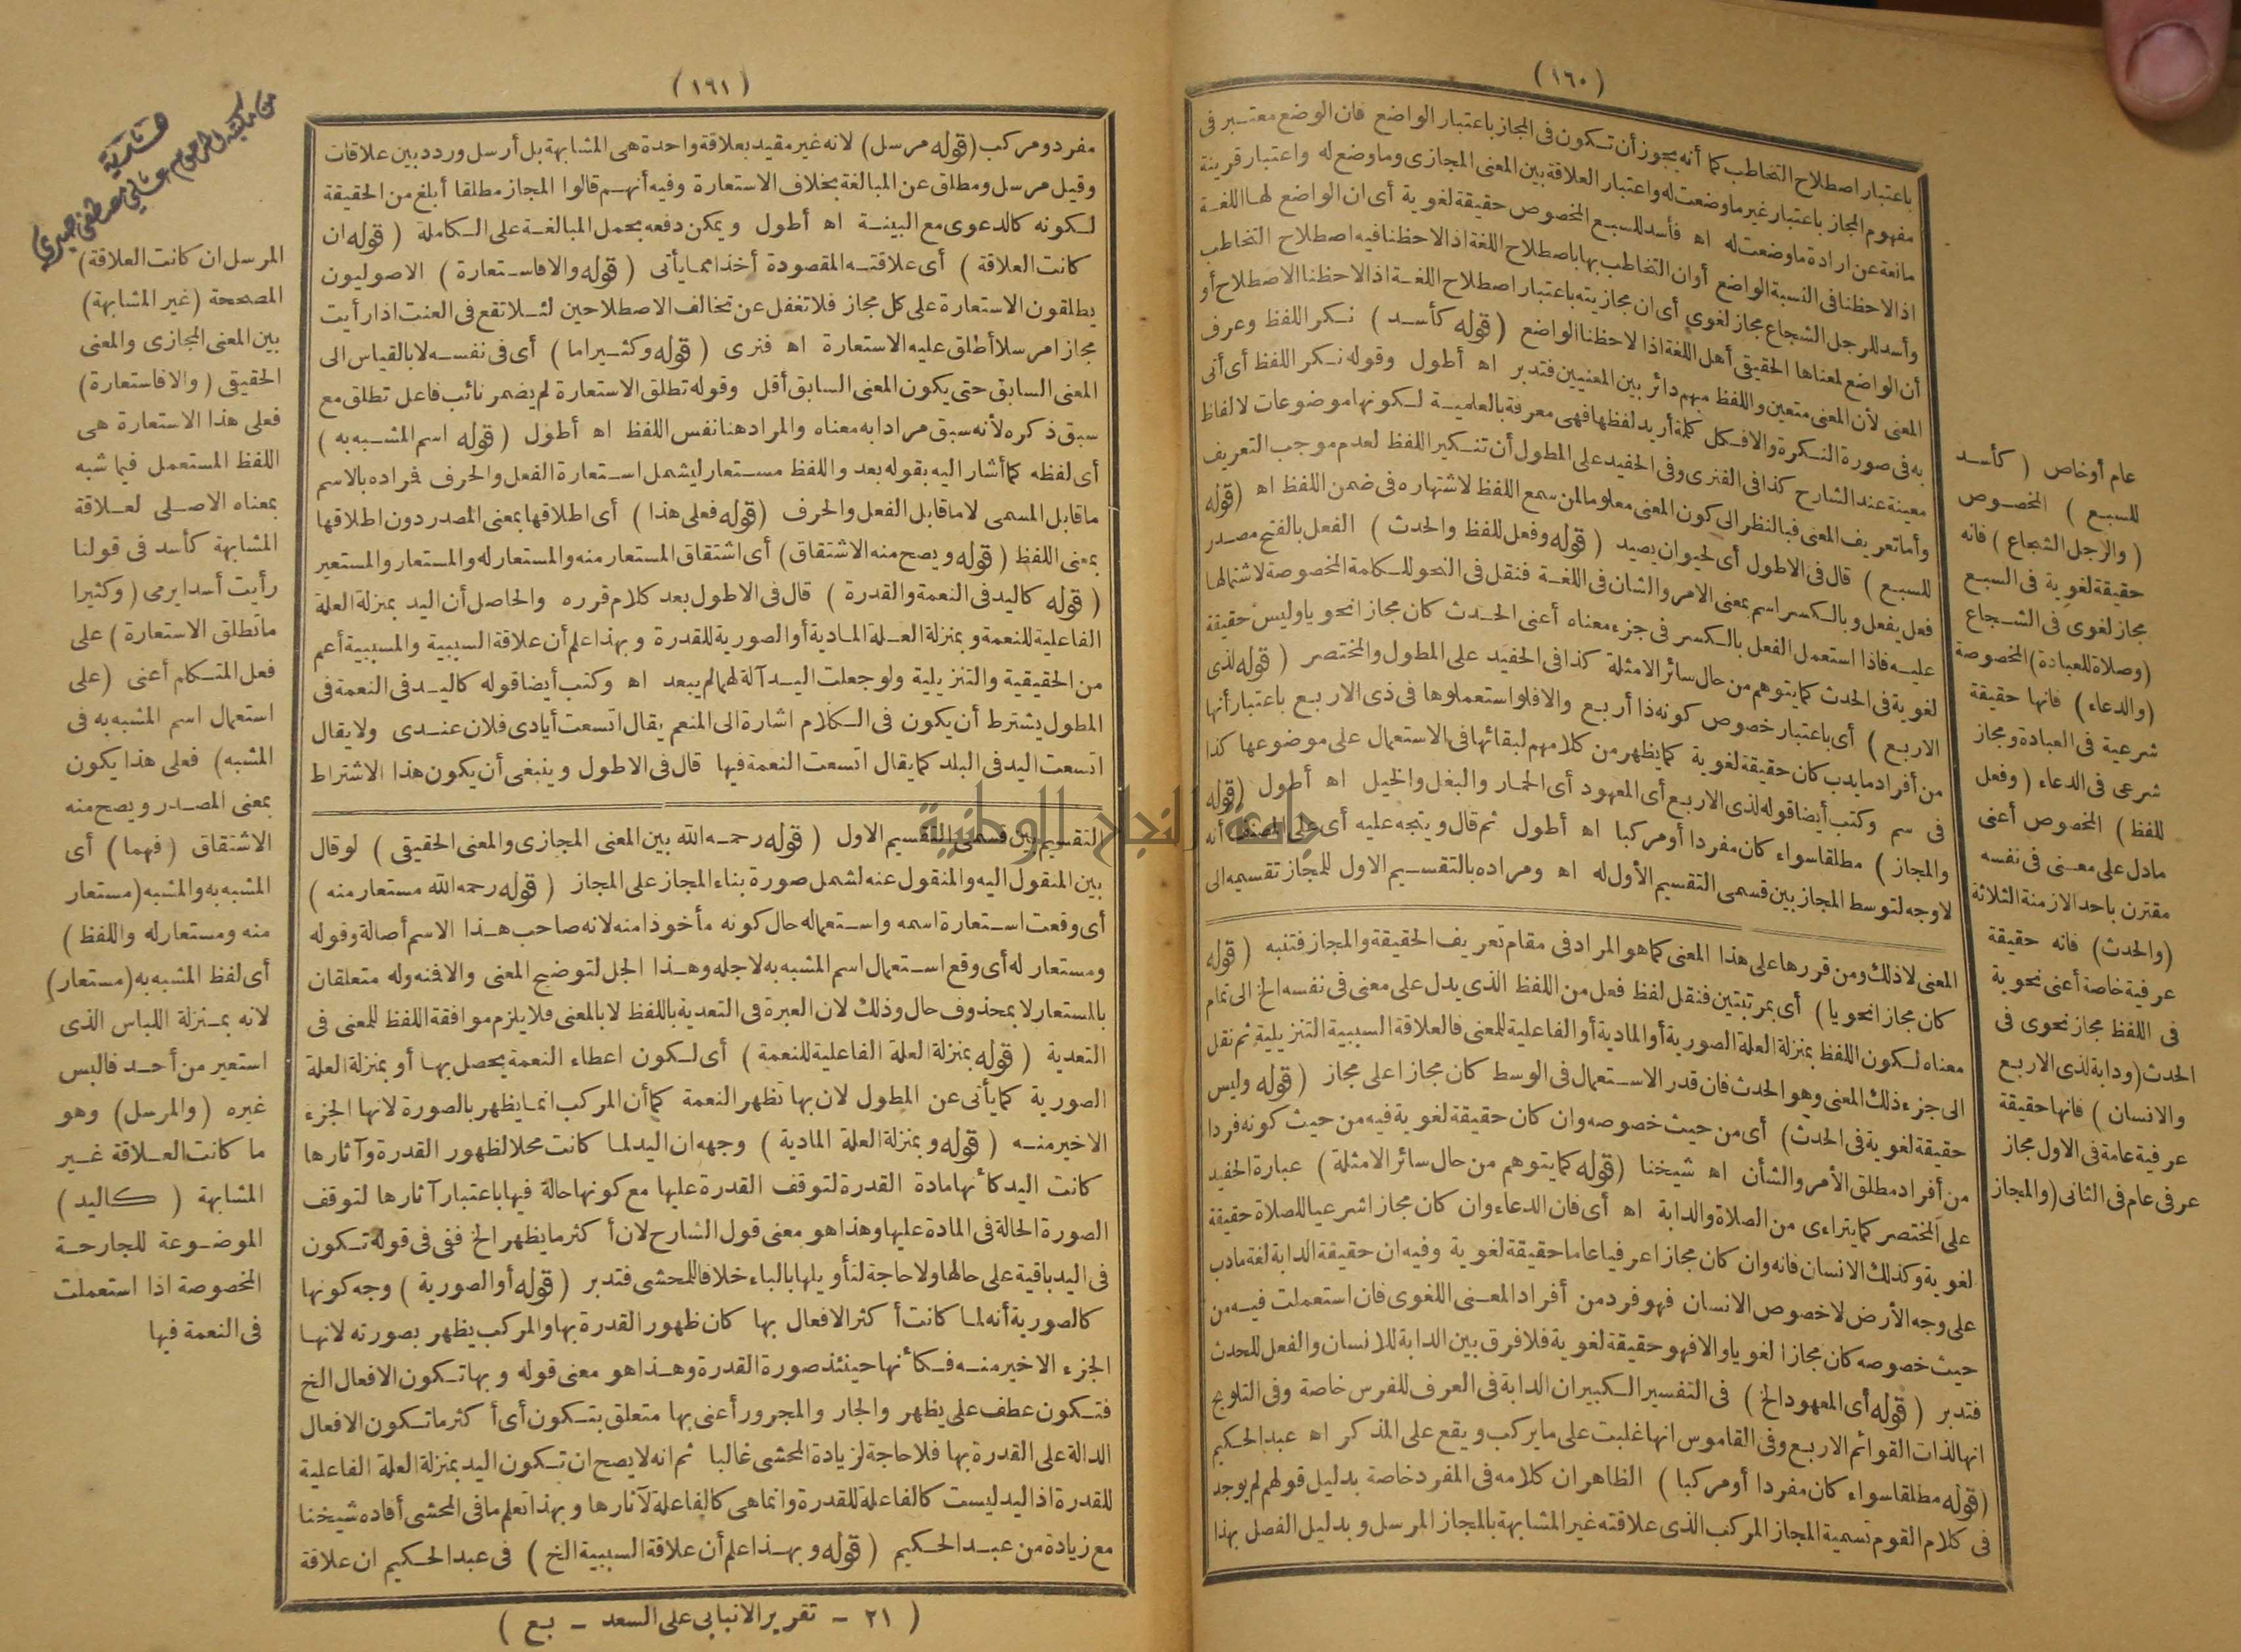 ( ١٦٠ )
باعتبار اصطلاح التخاطب كما أنه يجوز أن تكون فى المجاز باعتبار الواضع فان الوضع معتبر فى
مفهوم المجاز باعتبار غير ما وضعت له واعتبار العلاقة بين المعنى المجازى وما وضع له واعتبار قرينة
مانعة عن ارادة ما وضعت له اه فأسد للسبع المخصوص حقيقة لغوية أى ان الواضع لها اللغة
اذا لاحظنا فى النسبة الواضع أو ان التخاطب بها باصطلاح اللغة اذا لاحظنا فيه اصطلاح التخاطب
وأسد للرجل الشجاع مجاز لغوى أى ان مجازيته باعتبار اصطلاح اللغة اذا لاحظنا الاصطلاح أو
أن الواضع لمعناها الحقيقى أهل اللغة اذا لاحظنا الواضع ( قوله كأسد ) نكر اللفظ وعرف
المعنى لأن المعنى متعين واللفظ مبهم دائر بين المعنيين فتدبر اه أطول وقوله نكر اللفظ أى أتى
به فى صورة النكرة والا فكل كلمة أريد لفظها فهى معرفة بالعلمية لكونها موضوعات لالفاظ
معينة عند الشارح كذا فى الفنرى وفى الحفيد على المطول أن تنكير اللفظ لعدم موجب التعريف
وأما تعريف المعنى فبالنظر الى كون المعنى معلوما لمن سمع اللفظ لاشتهاره فى ضمن اللفظ اه (قوله
للسبع ) قال فى الاطول أى لحيوان يصيد ( قوله وفعل للفظ والحدث ) الفعل بالفتح مصدر
فعل يفعل وبالكسر اسم بمعنى الامر والشان فى اللغة فنقل فى النحو للكلمة المخصوصة لاشتمالها
عليه فاذا استعمل الفعل بالكسر فى جزء معناه أعنى الحدث كان مجازا نحويا وليس حقيقة
لغوية فى الحدث كما يتوهم من حال سائر الامثلة كذا فى الحفيد على المطول والمختصر ( قوله لذى
الاربع ) أى باعتبار خصوص كونه ذا أربع والا فلو استعملوها فى ذى الاربع باعتبار أنها
من أفراد ما يدب كان حقيقة لغوية كما يظهر من كلامهم لبقائها فى الاستعمال على موضوعها كذا
فى سم وكتب أيضا قوله لذى الاربع أى المعهود أى الحمار والبغل والخيل اه أطول (قوله
والمجاز ) مطلقا سواء كان مفردا أو مركبا اه أطول ثم قال ويتجه عليه أى على المصنف أنه
لا وجه لتوسط المجاز بين قسمى التقسيم الأول له اه ومراده بالتقسيم الاول للمجاز تقسيمه الى
المعنى لا ذلك ومن قررها على هذا المعنى كما هو المراد فى مقام تعريف الحقيقة والمجاز فتنبه (قوله
كان مجازا نحويا ) أى بمرتبتين فنقل لفظ فعل من اللفظ الذى يدل على معنى فى نفسه الخ الى تمام
معناه لكون اللفظ بمنزلة العلة الصورية أو المادية أو الفاعلية للمعنى فالعلاقة السببية التنزيلية ثم نقل
الى جزء ذلك المعنى وهو الحدث فان قدر الاستعمال فى الوسط كان مجازا على مجاز ( قوله وليس
حقيقة لغوية فى الحدث ) أى من حيث خصوصه وان كان حقيقة لغوية فيه من حيث كونه فردا
من أفراد مطلق الأمر والشأن اه شيخنا (قوله كما يتوهم من حال سائر الامثلة ) عبارة الحفيد
على المختصر كما يتراءى من الصلاة والدابة اه أى فان الدعاء وان كان مجازا شرعيا للصلاة حقيقة
لغوية وكذلك الانسان فانه وان كان مجازا عرفيا عاما حقيقة لغوية وفيه ان حقيقة الدابة لغة ما دب
على وجه الأرض لا خصوص الانسان فهو فرد من أفراد المعنى اللغوى فان استعملت فيه من
حيث خصوصه كان مجازا لغويا والا فهو حقيقة لغوية فلا فرق بين الدابة للانسان والفعل للحدث
فتدبر ( قوله أى المعهود الخ ) فى التفسير الكبير ان الدابة فى العرف للفرس خاصة وفى التلويح
انها لذات القوائم الاربع وفى القاموس انها غلبت على ما يركب ويقع على المذكر اه عبد الحكيم
(قوله مطلقا سواء كان مفردا أو مركبا ) الظاهر ان كلامه فى المفرد خاصة بدليل قولهم لم يوجد
فى كلام القوم تسمية المجاز المركب الذى علاقته غير المشابهة بالمجاز المرسل وبدليل الفصل بهذا
عام أو خاص ( كأسد
للسبع ) المخصوص
( والرجل الشجاع ) فانه
حقيقة لغوية فى السبع
مجاز لغوى فى الشجاع
(وصلاة للعبادة) المخصوصة
(والدعاء ) فانها حقيقة
شرعية فى العبادة ومجاز
شرعى فى الدعاء ( وفعل
للفظ ) المخصوص أعنى
ما دل على معنى فى نفسه
مقترن باحد الازمنة الثلاثة
(والحدث) فانه حقيقة
عرفية خاصة أعنى نحوية
فى اللفظ مجاز نحوى فى
الحدث (ودابة لذى الاربع
والانسان ) فانها حقيقة
عرفية عامة فى الاول مجاز
عرفى عام فى الثانى (والمجاز
( ١٦١ )
مفرد ومركب (قوله مرسل) لانه غير مقيد بعلاقة واحدة هى المشابهة بل أرسل وردد بين علاقات
وقيل مرسل ومطلق عن المبالغة بخلاف الاستعارة وفيه أنهم قالوا المجاز مطلقا أبلغ من الحقيقة
لكونه كالدعوى مع البينة اه أطول ويمكن دفعه بحمل المبالغة على الكاملة ( قوله ان
كانت العلاقة ) أى علاقته المقصودة أخذا مما يأتى ( قوله والا فاستعارة ) الاصوليون
يطلقون الاستعارة على كل مجاز فلا تغفل عن تخالف الاصطلاحين لئلا تقع فى العنت اذا رأيت
مجازا مرسلا أطلق عليه الاستعارة اه فنرى ( قوله وكثيرا ما ) أى فى نفسه لا بالقياس الى
المعنى السابق حتى يكون المعنى السابق أقل وقوله تطلق الاستعارة لم يضمر نائب فاعل تطلق مع
سبق ذكره لأنه سبق مرادا به معناه والمراد هنا نفس اللفظ اه أطول ( قوله اسم المشبه به )
أى لفظه كما أشار اليه بقوله بعد واللفظ مستعار ليشمل استعارة الفعل والحرف فمراده بالاسم
ما قابل المسمى لا ما قابل الفعل والحرف (قوله فعلى هذا ) أى اطلاقها بمعنى المصدر دون اطلاقها
بمعنى اللفظ ( قوله ويصح منه الاشتقاق ) أى اشتقاق المستعار منه والمستعار له والمستعار والمستعير
( قوله كاليد فى النعمة والقدرة ) قال فى الاطول بعد كلام قرره والحاصل أن اليد بمنزلة العلة
الفاعلية للنعمة وبمنزلة العلة المادية أو الصورية للقدرة وبهذا علم أن علاقة السببية والمسببية أعم
من الحقيقية والتنزيلية ولو جعلت اليد آلة لهما لم يبعد اه وكتب أيضا قوله كاليد فى النعمة فى
المطول يشترط أن يكون فى الكلام اشارة الى المنعم يقال اتسعت أيادى فلان عندى ولا يقال
اتسعت اليد فى البلد كما يقال اتسعت النعمة فيها قال فى الاطول وينبغى أن يكون هذا الاشتراط
التقسيم بين قسمى التقسيم الاول ( قوله رحمه الله بين المعنى المجازى والمعنى الحقيقى ) لو قال
بين المنقول اليه والمنقول عنه لشمل صورة بناء المجاز على المجاز ( قوله رحمه الله مستعار منه )
أى وقعت استعارة اسمه واستعماله حال كونه مأخوذا منه لانه صاحب هذا الاسم أصالة وقوله
ومستعار له أى وقع استعمال اسم المشبه به لاجله وهذا الحل لتوضيح المعنى والا فمنه وله متعلقان
بالمستعار لا بمحذوف حال وذلك لان العبرة فى التعدية باللفظ لا بالمعنى فلا يلزم موافقة اللفظ للمعنى فى
التعدية ( قوله بمنزلة العلة الفاعلية للنعمة ) أى لكون اعطاء النعمة يحصل بها أو بمنزلة العلة
الصورية كما يأتى عن المطول لان بها تظهر النعمة كما أن المركب انما يظهر بالصورة لانها الجزء
الاخير منه ( قوله وبمنزلة العلة المادية ) وجهه ان اليد لما كانت محلا لظهور القدرة وآثارها
كانت اليد كأنها مادة القدرة لتوقف القدرة عليها مع كونها حالة فيها باعتبار آثارها لتوقف
الصورة الحالة فى المادة عليها وهذا هو معنى قول الشارح لان أكثر ما يظهر الخ ففى فى قوله تكون
فى اليد باقية على حالها ولا حاجة لتأويلها بالباء خلافا للمحشى فتدبر ( قوله أو الصورية ) وجه كونها
كالصورية أنه لما كانت أكثر الافعال بها كان ظهور القدرة بها والمركب يظهر بصورته لانها
الجزء الاخير منه فكأنها حينئذ صورة القدرة وهذا هو معنى قوله وبها تكون الافعال الخ
فتكون عطف على يظهر والجار والمجرور أعنى بها متعلق بتكون أى أكثر ما تكون الافعال
الدالة على القدرة بها فلا حاجة لزيادة المحشى غالبا ثم انه لا يصح ان تكون اليد بمنزلة العلة الفاعلية
للقدرة اذ اليد ليست كالفاعلة للقدرة وانما هى كالفاعلة لآثارها وبهذا تعلم ما فى المحشى أفاده شيخنا
مع زيادة من عبد الحكيم ( قوله وبهذا علم أن علاقة السببية الخ ) فى عبد الحكيم ان علاقة
المرسل ان كانت العلاقة)
المصححة (غير المشابهة)
بين المعنى المجازى والمعنى
الحقيقى ( والا فاستعارة)
فعلى هذا الاستعارة هى
اللفظ المستعمل فيما شبه
بمعناه الاصلى لعلاقة
المشابهة كأسد فى قولنا
رأيت أسدا يرمى ( وكثيرا
ما تطلق الاستعارة ) على
فعل المتكلم أعنى (على
استعمال اسم المشبه به فى
المشبه) فعلى هذا يكون
بمعنى المصدر ويصح منه
الاشتقاق ( فهما ) أى
المشبه به والمشبه (مستعار
منه ومستعار له واللفظ )
أى لفظ المشبه به (مستعار)
لانه بمنزلة اللباس الذى
استعير من أحد فالبس
غيره (والمرسل) وهو
ما كانت العلاقة غير
المشابهة ( كاليد )
الموضوعة للجارحة
المخصوصة اذا استعملت
فى النعمة فيها
( ٢١ - تقرير الانبابى على السعد - بع )
جامعة النجاح الوطنية